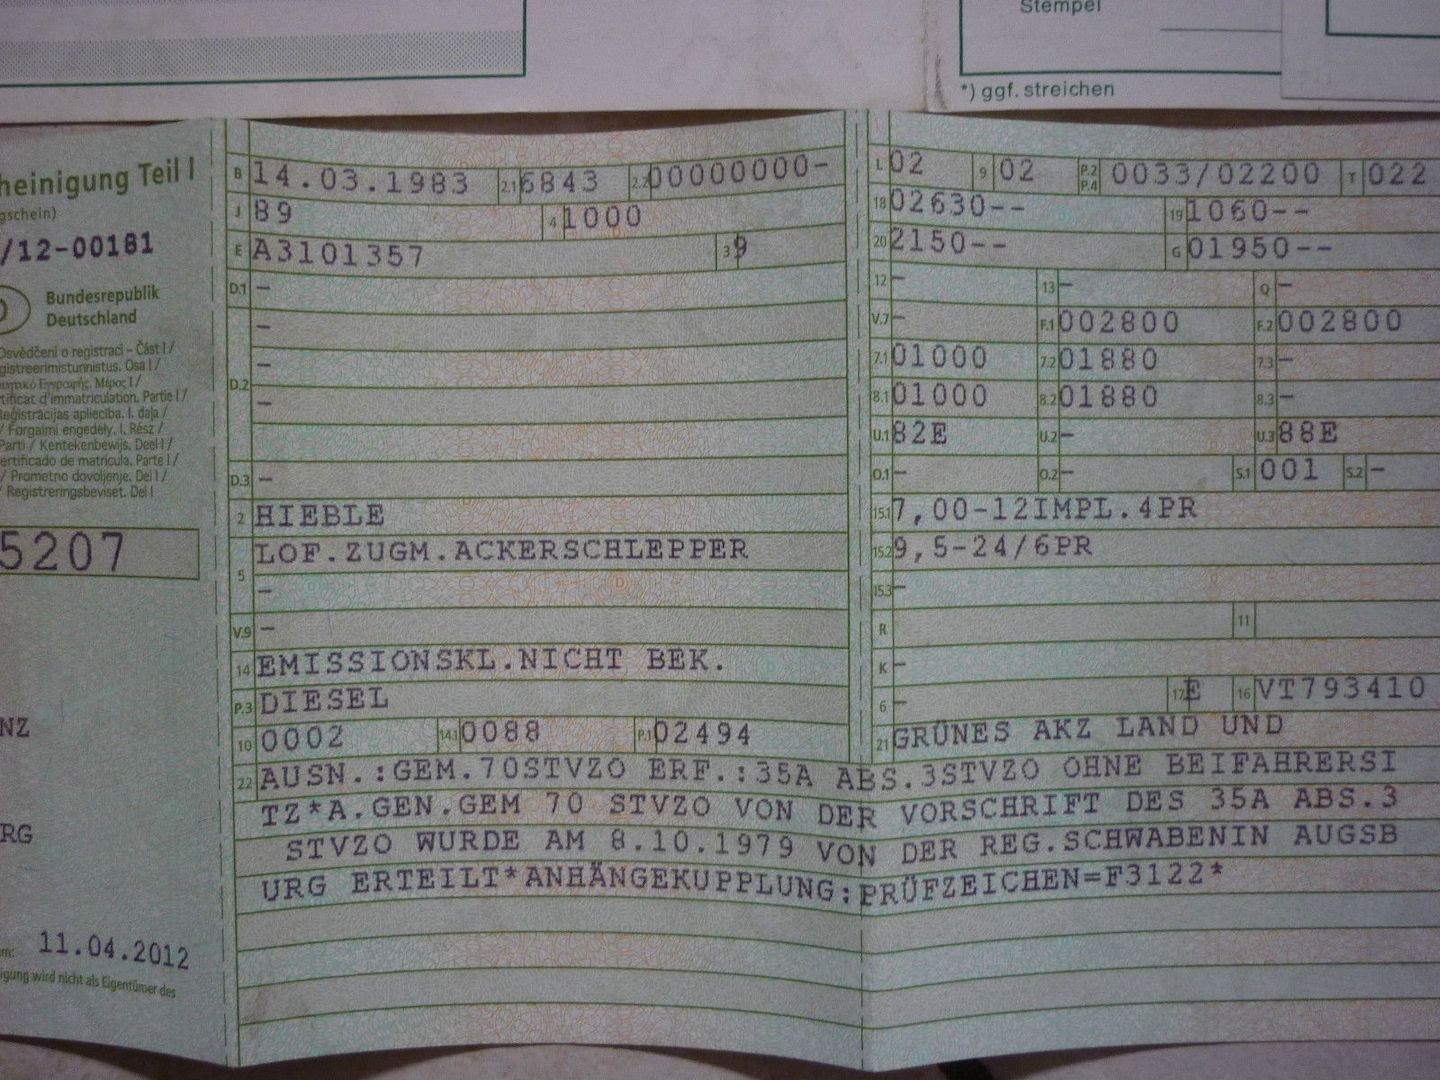 Stempel
*) ggf. streichen
heinigung Teil I
gschein)
/12-00181
Bundesrepublik
Deutschland
Osvědčení o registraci – Část I /
gistreerimistunnistus. Osa I /
Μέρος I /
tificat d'immatriculation. Partie I /
Reģistrācijas apliecība. I. daļa /
/ Forgalmi engedély. I. Rész /
Parti / Kentekenbewijs. Deel I /
ertificado de matrícula. Parte I /
/ Prometno dovoljenje. Del I /
/ Registreringsbeviset. Del I
5207
NZ
RG
11.04.2012
igung wird nicht als Eigentümer des
B 14.03.1983 2.1 6843 2.2 00000000-
J 89 4 1000
E A3101357 3 9
D.1 -
-
-
D.2 -
D.3 -
2 HIEBLE
LOF.ZUGM.ACKERSCHLEPPER
5 -
V.9 -
14 EMISSIONSKL.NICHT BEK.
P.3 DIESEL
10 0002 14.1 0088 P.1 02494
L 02 9 02 P.2 P.4 0033/02200 T 022
18 02630-- 19 1060--
20 2150-- G 01950--
12 - 13 - Q -
V.7 - F.1 002800 F.2 002800
7.1 01000 7.2 01880 7.3 -
8.1 01000 8.2 01880 8.3 -
U.1 82E U.2 - U.3 88E
O.1 - O.2 - S.1 001 S.2 -
15.1 7,00-12IMPL.4PR
15.2 9,5-24/6PR
15.3 -
R 11
K -
6 - 17 E 16 VT793410
21 GRÜNES AKZ LAND UND
22 AUSN.:GEM.70STVZO ERF.:35A ABS.3STVZO OHNE BEIFAHRERSI
TZ*A.GEN.GEM 70 STVZO VON DER VORSCHRIFT DES 35A ABS.3
STVZO WURDE AM 8.10.1979 VON DER REG.SCHWABENIN AUGSB
URG ERTEILT*ANHÄNGEKUPPLUNG:PRÜFZEICHEN=F3122*